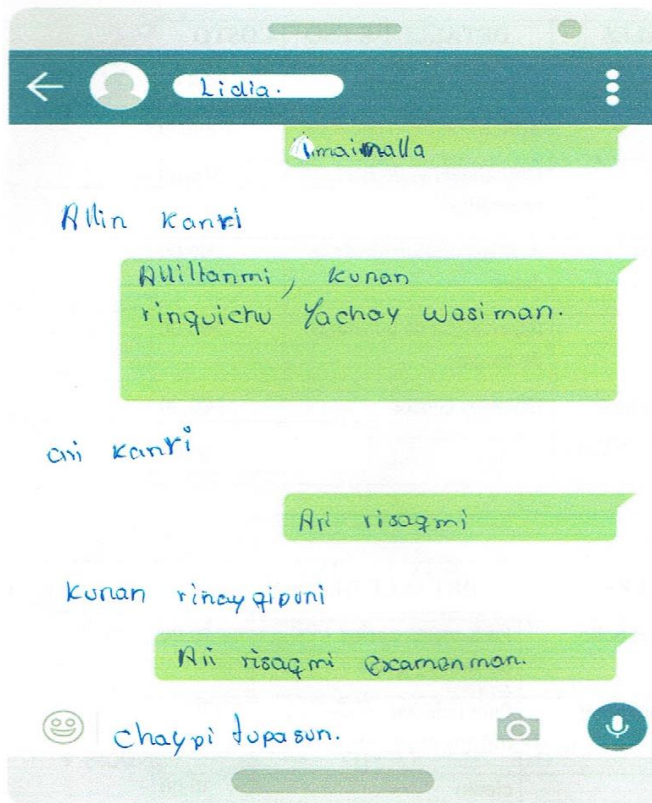 Lidia.
Imaimalla
Allin Kanri
Allillanmi, kunan
rinquichu Yachay wasiman.
ari kanri
Ari risaqmi
Kunan rinayqipuni
Ari risaqmi examenman.
chaypi tupasun.